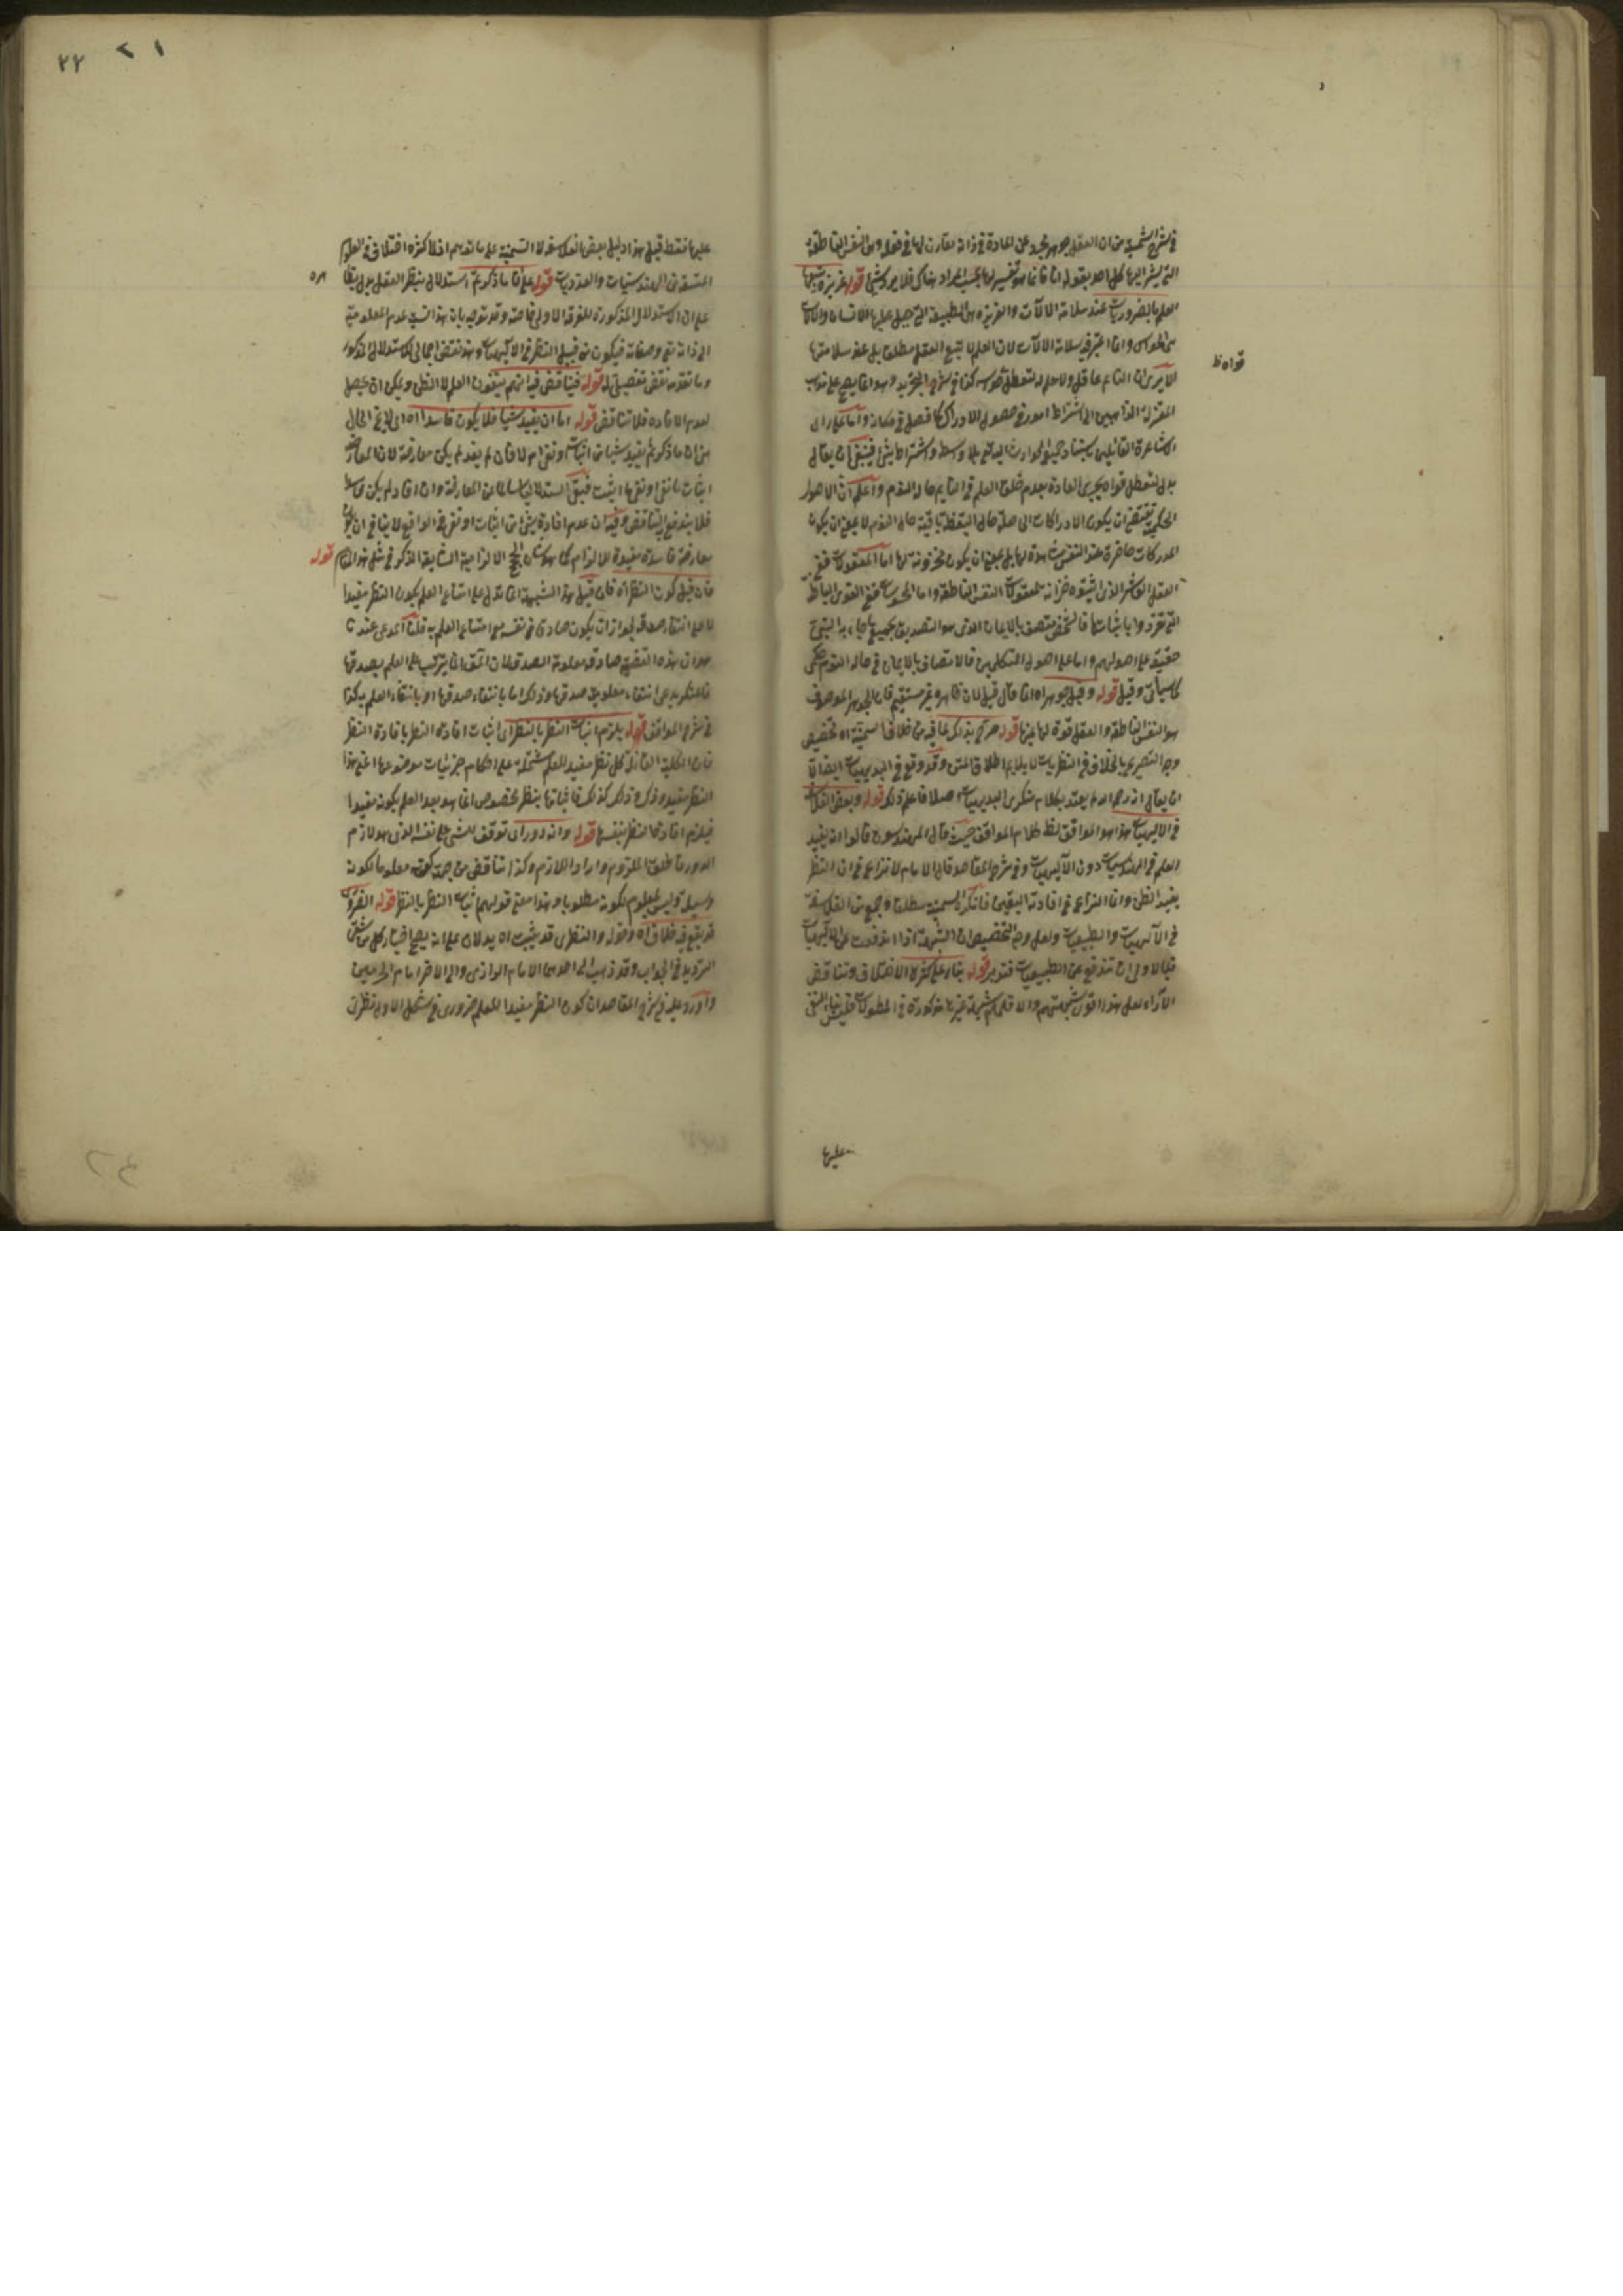 في شرح الشمسية من ان العقل جوهر مجرد عن المادة في ذاته مقارن لها في فعله وهي النفس الناطقة
التي يشير اليها كل احد بقوله انا فانما هو تفسير لها بحسب المراد هناك فلا يرد شيئ قوله غريزة يتبعها
العلم بالضروريات عند سلامة الآلات والغريزة هي الطبيعة التي جبل عليها الانسان والآلات
هي الحواس وانما اعتبر قيد سلامة الآلات لان العلم لا يتبع العقل مطلقا بل عند سلامتها
الا يرى ان النائم عاقل ولا علم له لتعطل حواسه كذا في شرح التجريد وهو انما يصح على مذهب
المعتزلة الذاهبين الى اشتراط امور في حصول الادراك كما فصل في مكانه واما على رأى
الاشاعرة القائلين باستناد جميع الحوادث اليه تعالى بلا وسط واشتراط شيئ فينبغي ان يقال
بدل لتعطل قواه بجرى العادة بعدم خلق العلم في النائم حال النوم واعلم ان الاصول
الحكمية تقتضي ان يكون الادراكات الحاصلة حال اليقظة باقية حال النوم لا بمعنى ان يكون
المدركات حاضرة عند النفس مشاهدة لها بل بمعنى ان يكون مخزونة لها اما المعقولات ففي
العقل العاشر الذي اثبتوه خزانة لمعقولات النفس الناطقة واما المحسوسات ففي القوى الباطنة
التي تفردوا باثباتها فالشخص متصف بالايمان الذي هو التصديق بجميع ما جاء به النبي
حقيقة على اصولهم واما على اصول المتكلمين فالاتصاف بالايمان في حال النوم حكمي
كما سيأتي وقيل قوله وقيل جوهر اه انما قال قيل لان ظاهره غير مستقيم فان الجوهر الموصوف
هو النفس الناطقة والعقل قوة لها عينها قوله صرح بذلك لما فيه من خلاف السمنية اه تخصيص
وجه التصريح بالخلاف في النظريات لا يلايم اطلاق المتن وقد وقع في البديهيات ايضا الا
ان يقال انه رحمه الله لم يعتد بكلام منكري البديهيات اصلا فاعلم ذلك قوله وبعض الفلاسفة
في الالهيات هذا هو الموافق لظ كلام المواقف حيث قال المهندسون قالوا انه يفيد
العلم في الهندسيات دون الآلهيات وفي شرح المقاصد قال الامام لا نزاع في ان النظر
يفيد الظن وانما النزاع في افادته اليقين فانكره السمنية مطلقا وجمع من الفلاسفة
في الآلهيات والطبيعيات ولعل وجه التخصيص ان الشبهة اذا اندفعت عن الآلهيات
فبالاولى ان تندفع عن الطبيعيات فتدبر قوله بناء على كثرة الاختلاف وتناقض
الآراء لعل هذا اقوى شبهتهم والا فلهم شبه غيرها مذكورة في المطولات
قواه ظ
عليها
٢٢ ٢١
عليها فقط قيل هذا دليل بعض الفلاسفة لا السمنية على ما توهم اذ لا كثرة اختلاف في العلوم
المتسقة من الهندسيات والعدديات قوله على ان ما ذكرتم استدلال بنظر العقل
على ان الاستدلال المذكورة للفرقة الاولى خاصة وقد توجه بان هذا نسبة عدم المعلومية
الى ذاته تع وصفاته فيكون من قبيل النظر في الآلهيات وهذا نقض اجمالي للاستدلال المذكور
وما تقدمه نقض تفصيلي له قوله فيتناقض فيه انهم ينفون العلم لا الظن ويمكن ان يحصل
لعدم الافادة فلا تناقض قوله اما ان يفيد شيئا فلا يكون فاسدا اه
من ان ما ذكرتم يفيد شيئا من اثبات او نفي ام لا فان لم يفد لم يكن معارضة لان المعارضة
اثبات ما نفى او نفى ما اثبت فبقي استدلالنا سالما عن المعارضة وان افاد لم يكن فاسدا
فلا يندفع التناقض وفيه ان عدم افادة شيئ من اثبات او نفي في الواقع لا ينافي ان يكون
معارضة فاسدة مفيدة للالزام كما هو شان الحجج الالزامية الشايعة الذكر في مثل هذا المقام قوله
فان قيل كون النظر اه فان قيل هذه الشبهة انما تدل على امتناع العلم بكون النظر مفيدا
لا على انتفاء صدقه لجواز ان يكون صادقا في نفسه مع امتناع العلم به قلنا المدعى عندنا
هو ان هذه القضية صادقة معلومة الصدق لان المق انما يترتب على العلم بصدقها
فالمنكر يدعى انتفاء معلومية صدقها وذلك اما بانتفاء صدقها او بانتفاء العلم به كذا
في شرح المواقف قوله يلزم اثبات النظر بالنظر اى اثبات افادة النظر بافادة النظر
فان الكلية القائلة كل نظر مفيد للعلم مشتملة على احكام جزئيات موضوعها اعني هذا
النظر مفيد وذك وذلك كذلك فاثباتها بنظر مخصوص انما هو بعد العلم بكونه مفيدا
فيلزم افادة النظر بنفسها قوله وانه دور اى توقف للشيئ على نفسه الذي هو لازم
الدور فاطلق الملزوم واراد اللازم وكذا تناقض من جهة كونه معلوما لكونه
وسيلة وليس بمعلوم لكونه مطلوبا وهذا معنى قولهم اثبات النظر بالنظر قوله الضرورى
قد يقع فيه خلاف اه وقوله والنظرى قد يثبت اه يدلان على انه يصح اختيار كل من شقي
الترديد في الجواب وقد ذهب الى احدهما الامام الرازي والى الاخر امام الحرمين
واورد عليه في شرح المقاصد ان كون النظر مفيدا للعلم ضرورى في الشكل الاول نظرى